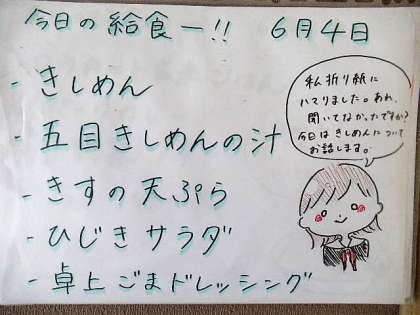 今日の給食ー!! 6月4日
- きしめん
- 五目きしめんの汁
- きすの天ぷら
- ひじきサラダ
- 卓上ごまドレッシング
私折り紙に
ハマりました。あれ、
聞いてなかったですか?
今日はきしめんについて
お話します。